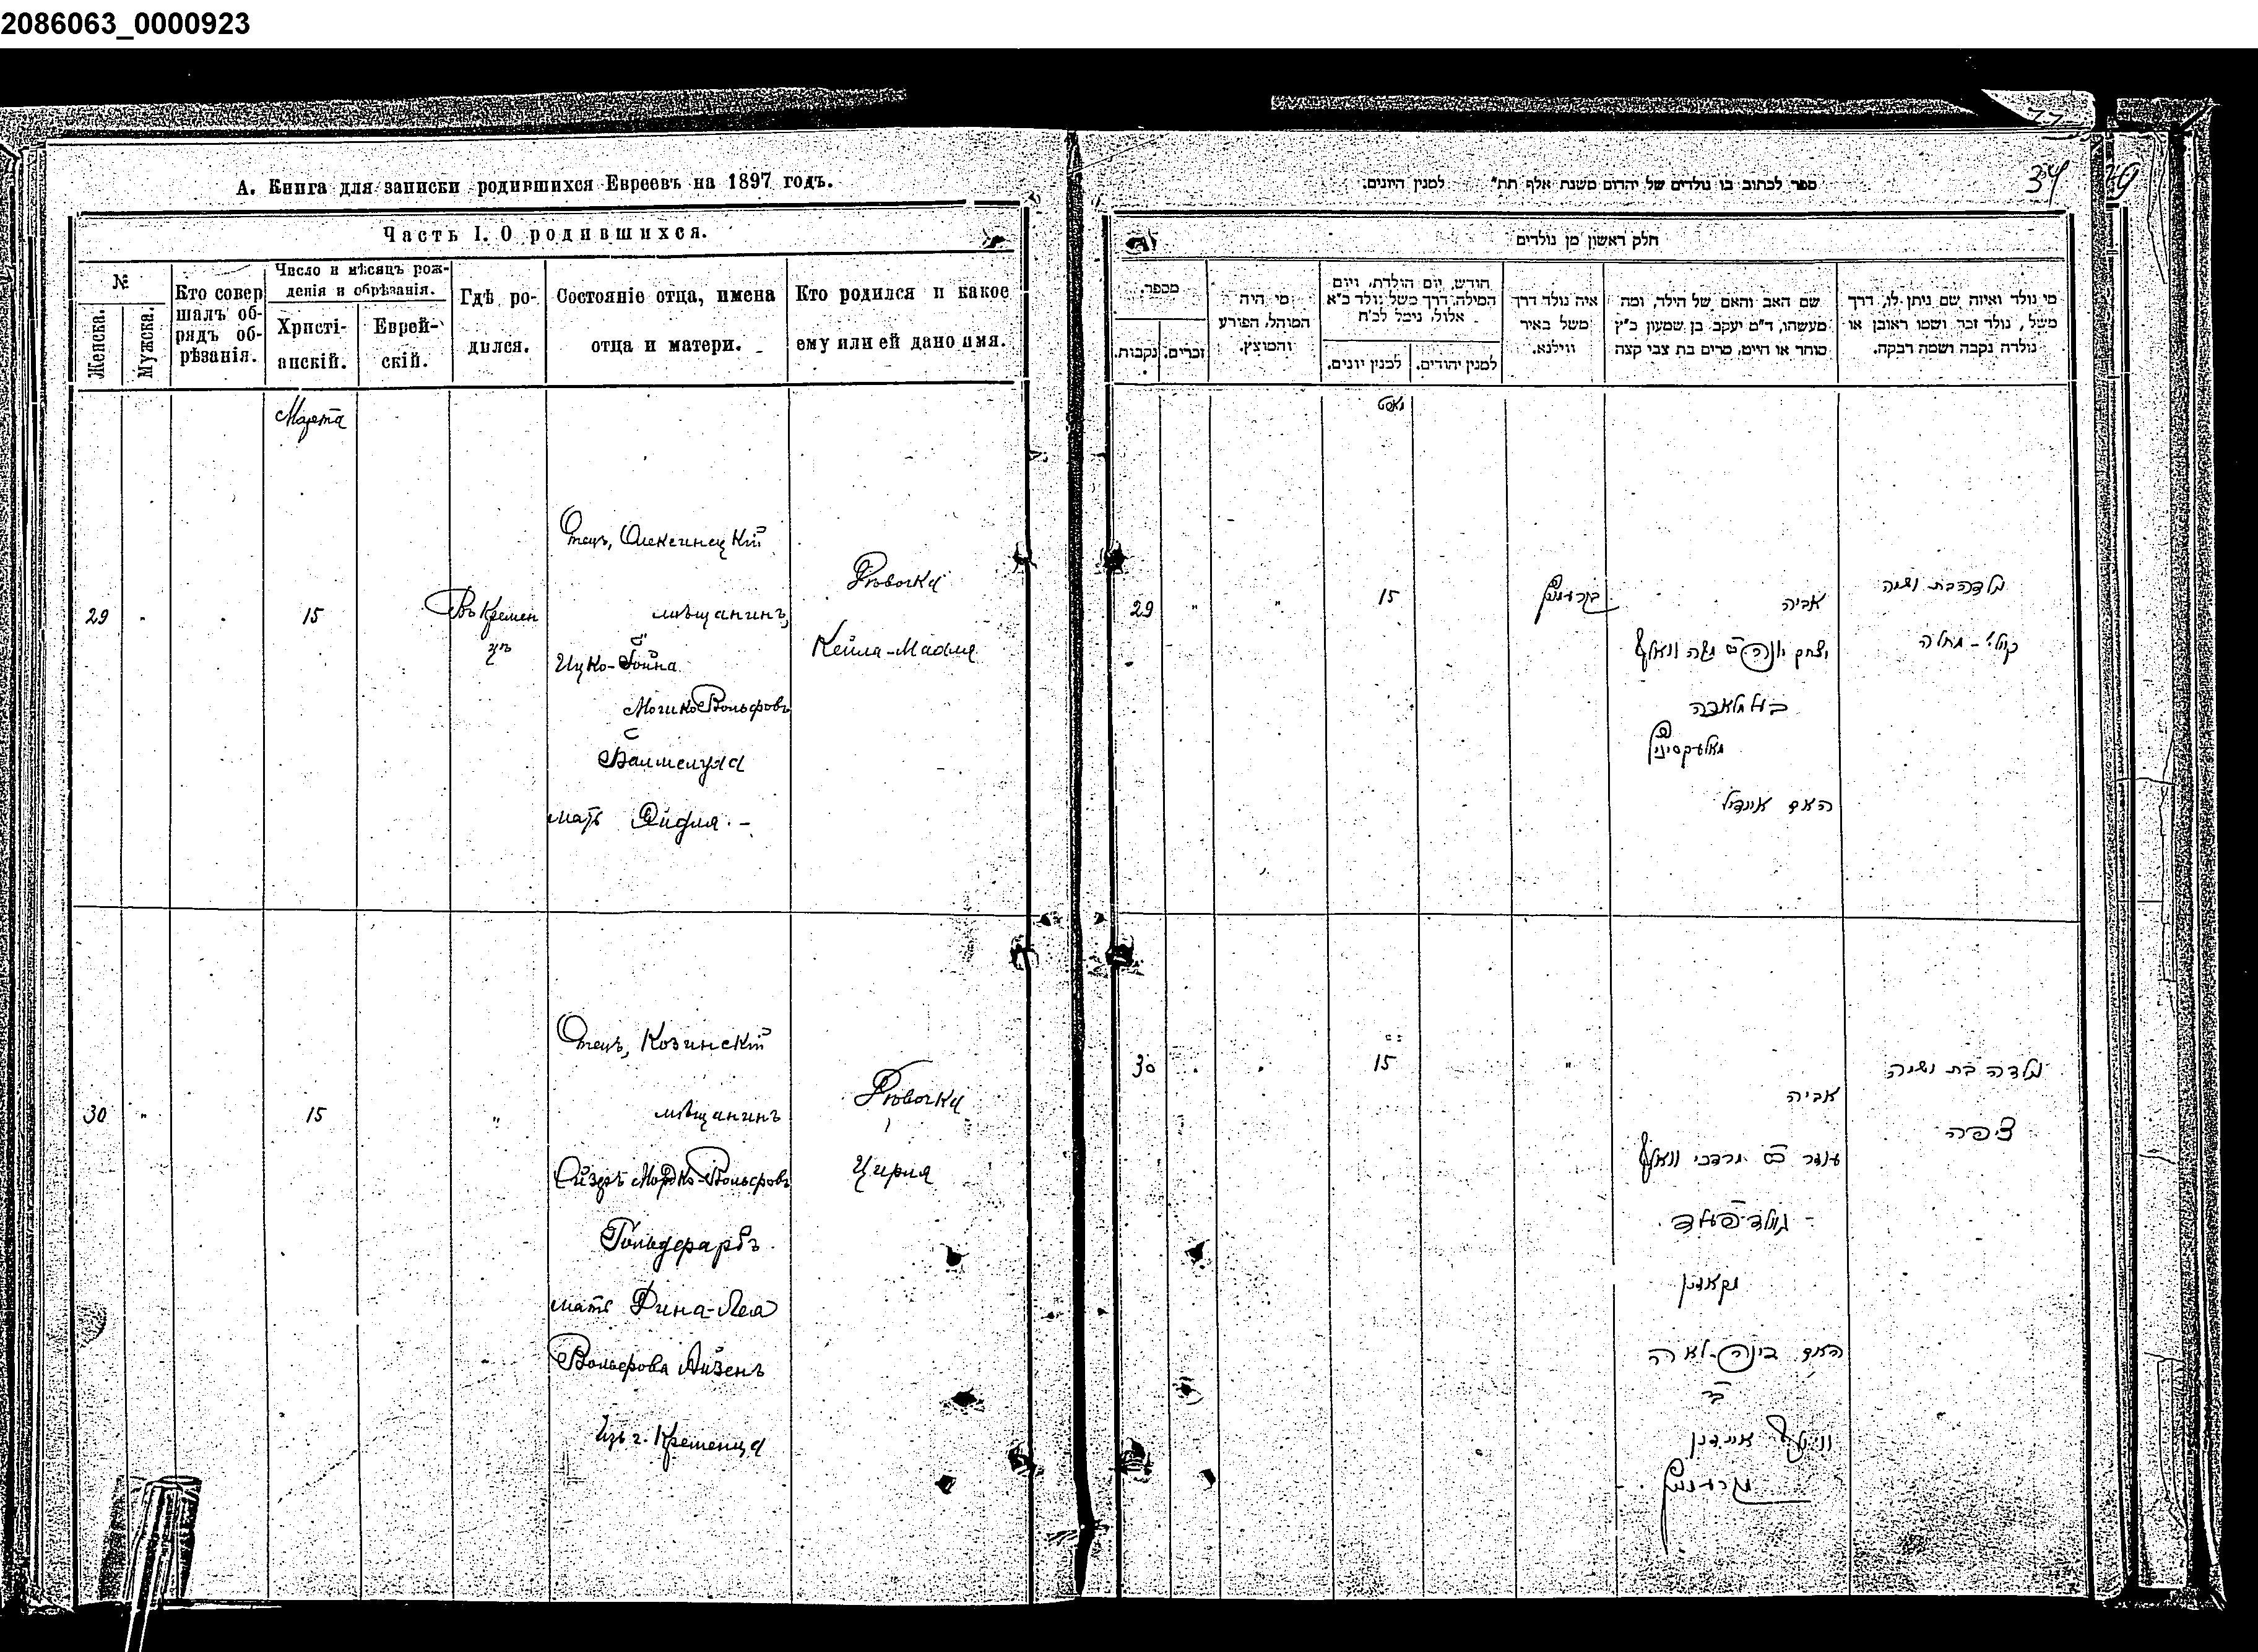 2086063_0000923
А. Книга для записки родившихся Евреевъ на 1897 годъ.
Часть I. О родившихся.
№
Женска.
Мужска.
Кто совер
шалъ об-
рядъ об-
рѣзанія.
Число и мѣсяцъ рож-
денія и обрѣзанія.
Христі-
анскій.
Еврей-
скій.
Гдѣ ро-
дился.
Состояніе отца, имена
отца и матери.
Кто родился и какое
ему или ей дано имя.
Марта
29
15
Въ Кремен
цѣ
Отецъ, Олексинецкій
мѣщанинъ,
Ицко-Іойна
Мошко Вольфовъ
мать Эйдля
Дѣвочка
Кейла-Махля
30
15
"
Отецъ, Козинскій
мѣщанинъ
Лейзеръ Мордко-Вольфовъ
Гольдфарбъ
мать Дина-Леа
Вольфова Айзенъ
изъ г. Кременца
Дѣвочка
Цирля
34
ספר לכתוב בו נולדים של יהדום משנת אלף תת״ למנין היונים.
חלק ראשון מן נולדים
מספר.
נקבות.
זכרים.
מי היה
המוהל, הפורע
והמוצץ.
חודש, יום הולדת, ויום
המילה, דרך משל נולד כ״א
אלול, נימל לכ״ח
למנין יונים.
למנין יהודים.
איה נולד דרך
משל באיר
ווילנא.
שם האב והאם של הילד, ומה
מעשהו, ד״מ יעקב בן שמעון כ״ץ
סוחר או חייט, מרים בת צבי קצה
מי נולד ואיזה שם ניתן לו, דרך
משל, נולד זכר ושמו ראובן או
נולדה נקבה ושמה רבקה.
29
15
אביה
יצחק יונה משה וואלף
האם איידיל
נולדה בת ושמה
קיילי - מחלה
30
15
"
אביה
מרדכי וואלף
האם דינה-לאה
נולדה בת ושמה